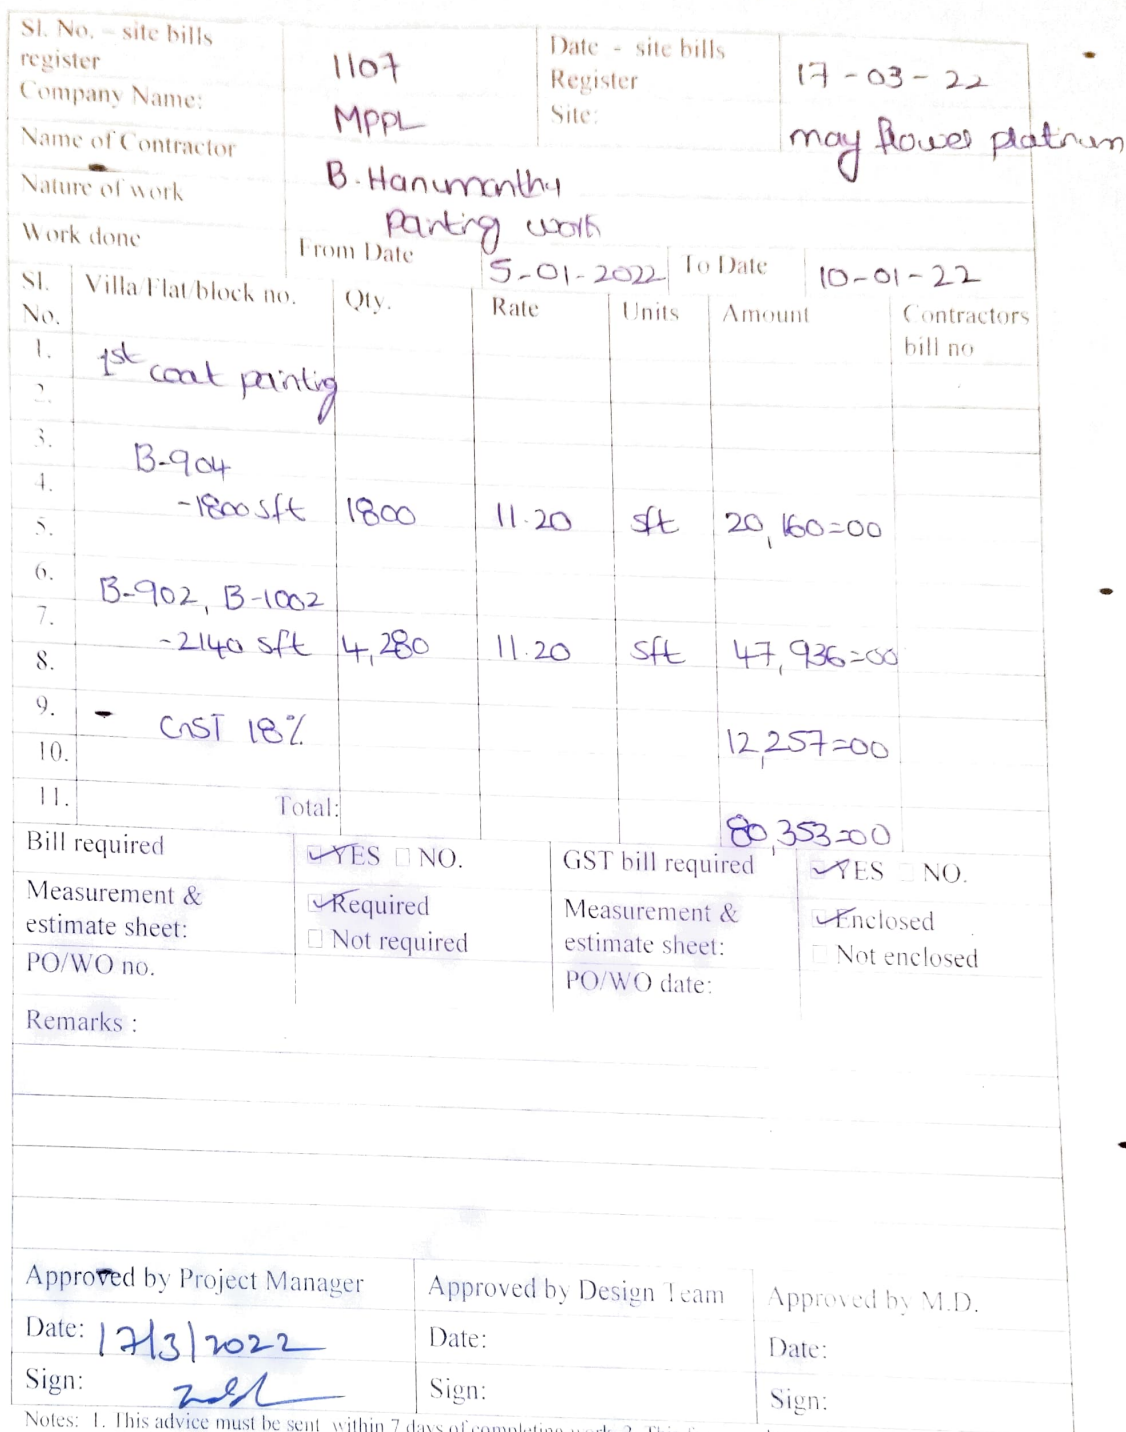 Sl. No. – site bills register 1107 Date - site bills Register 17-03-22
Company Name: MPPL Site: may flower platnum
Name of Contractor B. Hanumanthu
Nature of work Painting work
Work done From Date 5-01-2022 To Date 10-01-22
Sl. No. Villa/Flat/block no. Qty. Rate Units Amount Contractors bill no
1. 1st coat painting
2.
3. B-904
4. -1800 sft 1800 11.20 sft 20,160=00
5.
6. B-902, B-1002
7. -2140 sft 4,280 11.20 sft 47,936=00
8.
9. GST 18% 12,257=00
10.
11. Total: 80,353=00
Bill required YES NO. GST bill required YES NO.
Measurement & estimate sheet: Required Not required Measurement & estimate sheet: Enclosed Not enclosed
PO/WO no. PO/WO date:
Remarks :
Approved by Project Manager Approved by Design Team Approved by M.D.
Date: 17/3/2022 Date: Date:
Sign: Sign: Sign:
Notes: 1. This advice must be sent within 7 days of completing work. 2. This